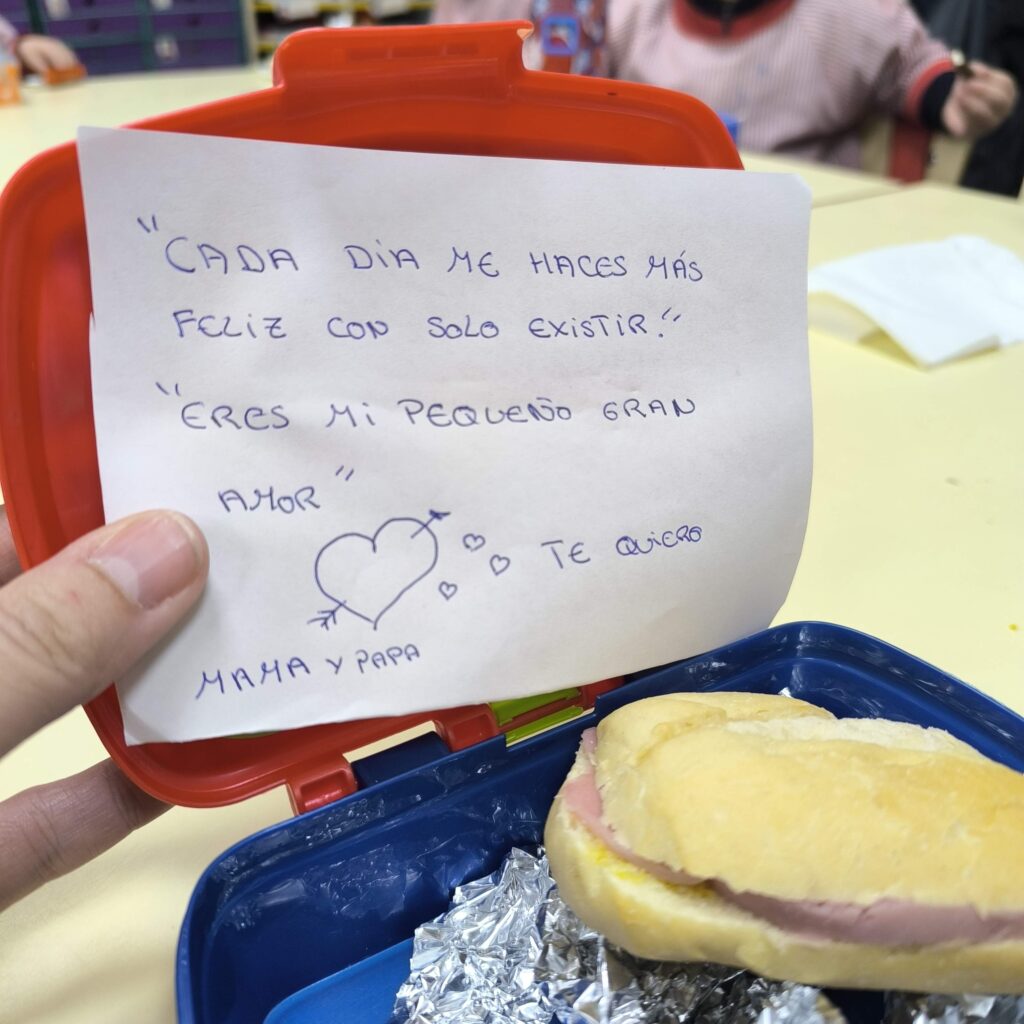 "CADA DÍA ME HACES MÁS
FELIZ CON SOLO EXISTIR."
"ERES MI PEQUEÑO GRAN
AMOR"
TE QUIERO
MAMA Y PAPA